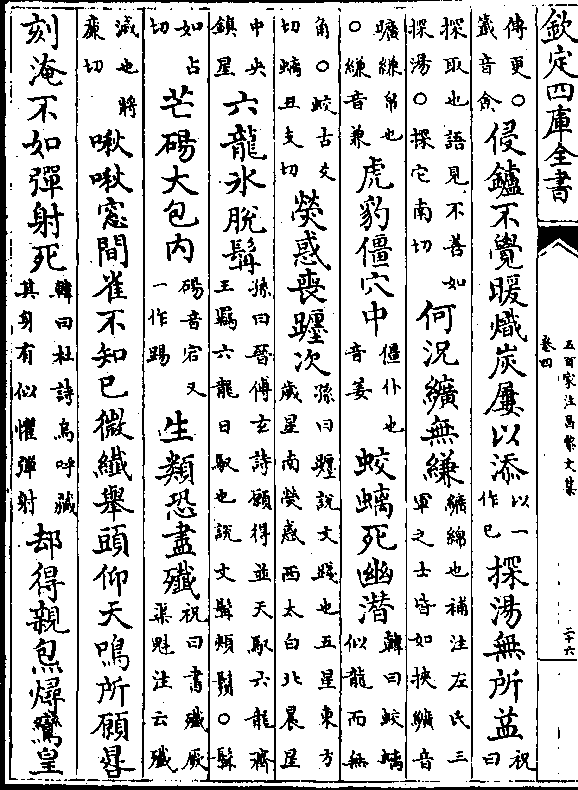 欽定四庫全書
五百家注昌黎文集
卷四
二十六
傳更○
籖音僉
侵鑪不覺暖熾炭屢以添
以一
作已
探湯無所益
祝
曰
探取也語見不善如
探湯○探它南切
何況纊無縑
纊綿也補注左氏三
軍之士皆如挾纊音
曠縑帛也
○縑音兼
虎豹僵穴中
僵仆也
音姜
蛟螭死幽潛
韓曰蛟螭
似龍而無
角○蛟古爻
切螭丑支切
熒惑喪躔次
孫曰躔說文踐也五星東方
歲星南熒惑西太白北晨星
中央
鎮星
六龍氷脫髯
孫曰晉傅玄詩願得並天馭六龍濟
王羈六龍日馭也說文髯頰鬚○髯
如占
切
芒碭大包内
碭音宕又
一作踢
生類恐盡殲
祝曰書殲厥
渠魁注云殲
滅也將
廉切
啾啾窻間雀不知已微纖舉頭仰天鳴所願晷
刻淹不如彈射死
韓曰杜詩烏呼藏
其身有似懼彈射
却得親炰燖鸞皇